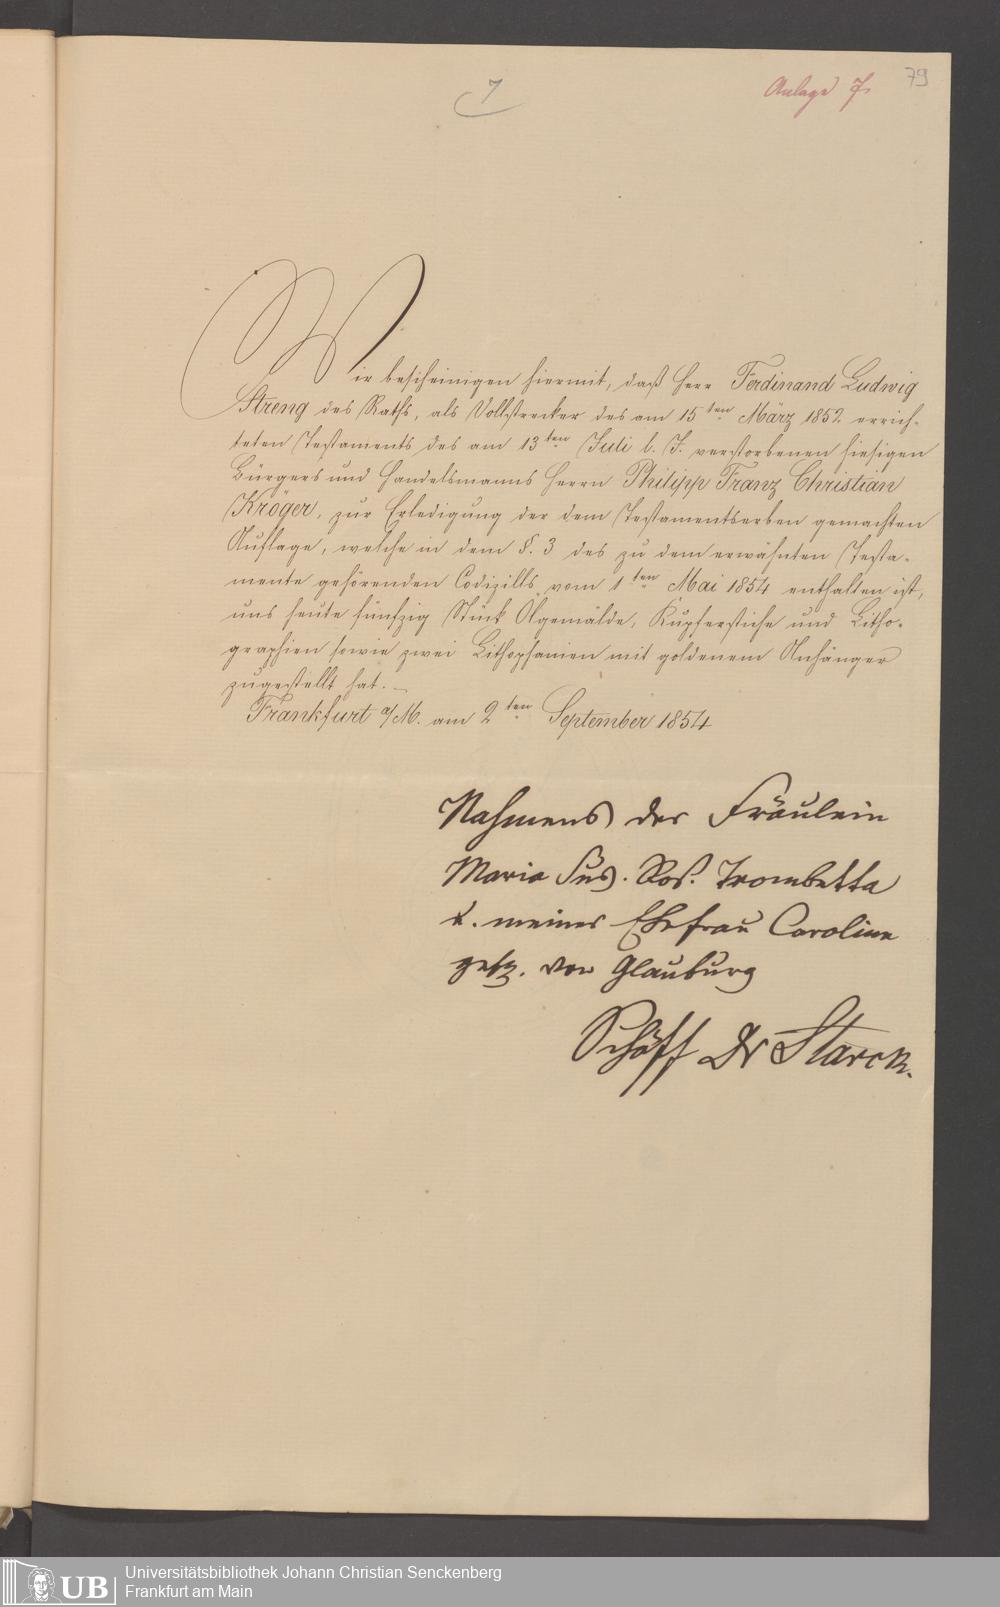 7
Anlage 7.
79
Wir bescheinigen hiermit, daß Herr Ferdinand Ludwig
Streng des Raths, als Vollstrecker des am 15ten März 1852 errich-
teten Testaments des am 13ten Juli l. J. verstorbenen hiesigen
Bürgers und Handelsmanns Herrn Philipp Franz Christian
Kröger, zur Erledigung der dem Testamentserben gemachten
Auflage, welche in dem §. 3 des zu dem erwähnten Testa-
mente gehörenden Codizills vom 1ten Mai 1854 enthalten ist,
uns heute fünfzig Stück Ölgemälde, Kupferstiche und Litho-
graphien sowie zwei Lithophanien mit goldenem Anhänger
zugestellt hat. —
Frankfurt a/M. am 2ten September 1854
Nahmens der Fräulein
Maria Sus. Ros. Trombetta
u. meiner Ehefrau Caroline
gebz. von Glauburg
Schöff Dr Starck.
UB
Universitätsbibliothek Johann Christian Senckenberg
Frankfurt am Main